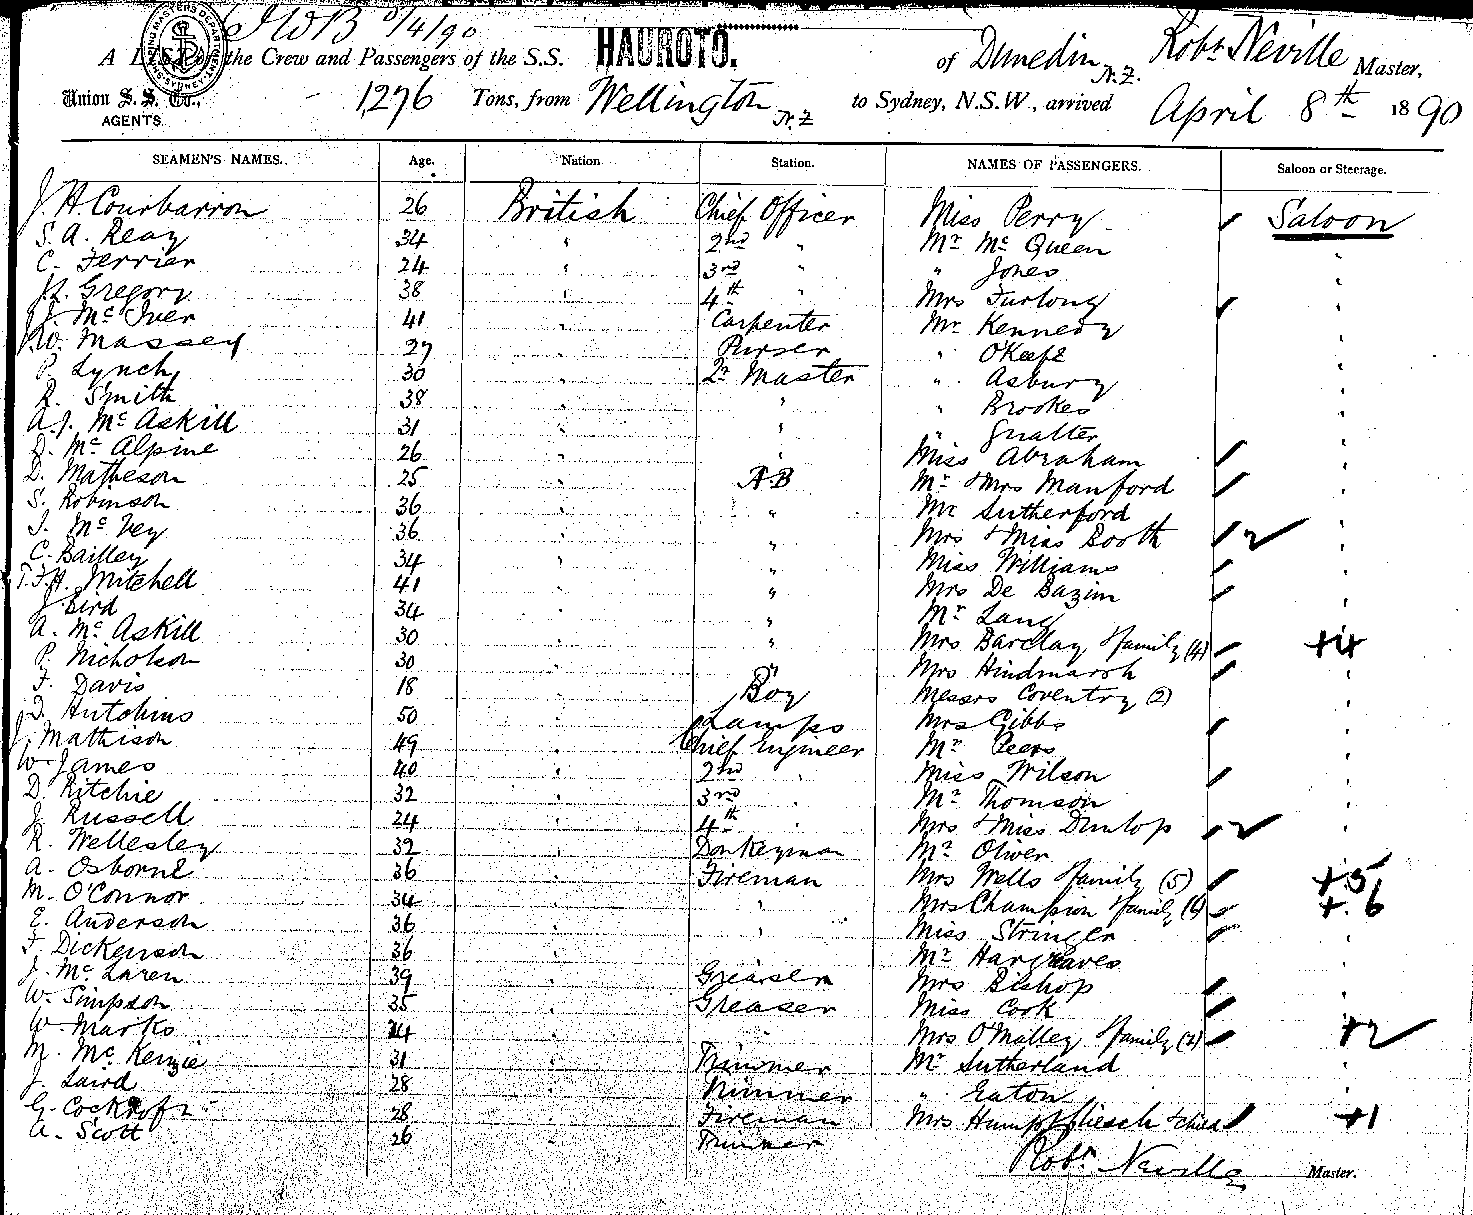 JWB 8/4/90
A LIST of the Crew and Passengers of the S.S. HAUROTO. of Dunedin N.Z. Robt Neville Master,
Union S. S. Co., AGENTS. 1276 Tons, from Wellington N.Z to Sydney, N.S.W., arrived April 8th 1890
SEAMEN'S NAMES. Age. Nation Station. NAMES OF PASSENGERS. Saloon or Steerage.
J. H. Courbarron 26 British Chief Officer Miss Perry Saloon
S. A. Reay 34 " 2nd " Mr McQueen "
C. Ferrier 24 " 3rd " " Jones "
Gregory 38 " 4th " Mrs Furlong "
J. McIver 41 " Carpenter Mr Kennedy "
W. Massey 27 " Purser " O'Keefe "
P. Lynch 30 " Qr Master " Asbury "
R. Smith 38 " " " Brookes "
A. J. McAskill 31 " " " "
D. McAlpine 26 " " Miss Abraham "
D. Matheson 25 " A.B Mr & Mrs Manford "
S. Robinson 36 " " Mr Sutherford "
J. McVey 36 " " Mrs & Miss Booth 2 "
C. Bailley 34 " " Miss Williams "
T.F.H. Mitchell 41 " " Mrs De Bazin "
J. Bird 34 " " Mr Lang "
A. McAskill 30 " " Mrs Barclay & family (4) +4
P. Nicholson 30 " " Mrs Hindmarsh "
F. Davis 18 " Boy Messrs Coventry (2) "
Hutchins 50 " Lamps Mrs Gibbs "
J. Mathison 49 " Chief Engineer Mr Peers "
W. James 40 " 2nd " Miss Wilson "
D. Ritchie 32 " 3rd " Mr Thomson "
J. Russell 24 " 4th " Mrs & Miss Dunlop 2 "
R. Wellesley 32 " Donkeyman Mr Oliver "
A. Osborne 36 " Fireman Mrs Wells & family (5) +5
M. O'Connor 34 " " Mrs Champion & family (6) +6
E. Anderson 36 " " Miss Stringer "
F. Dickenson 36 " Mr Hargreaves "
J. McLaren 39 " Greaser Mrs Bishop "
W. Simpson 35 " Greaser Miss Cook "
W. Marks 24 " " Mrs O'Malley & family (2) +2
M. McKenzie 31 " Trimmer Mr Sutherland "
J. Laird 28 " Trimmer " Eaton "
G. Cockroft 28 " Fireman Mrs & child +1
A. Scott 26 " Trimmer
Robt Neville Master.